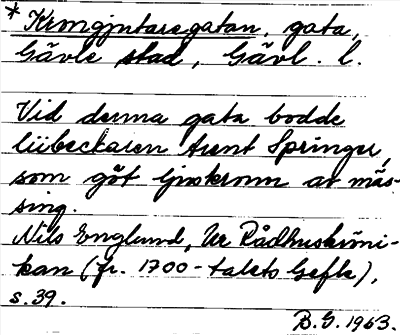 * Krongjutaregatan, gata,
Gävle stad, Gävl. l.
Vid denna gata bodde
lübeckaren Arent Springer,
som göt ljuskronor av mäs-
sing.
Nils Englund, Ur Rådhuskröni-
kan (fr. 1700-talets Gefle),
s. 39.
B.G. 1963.